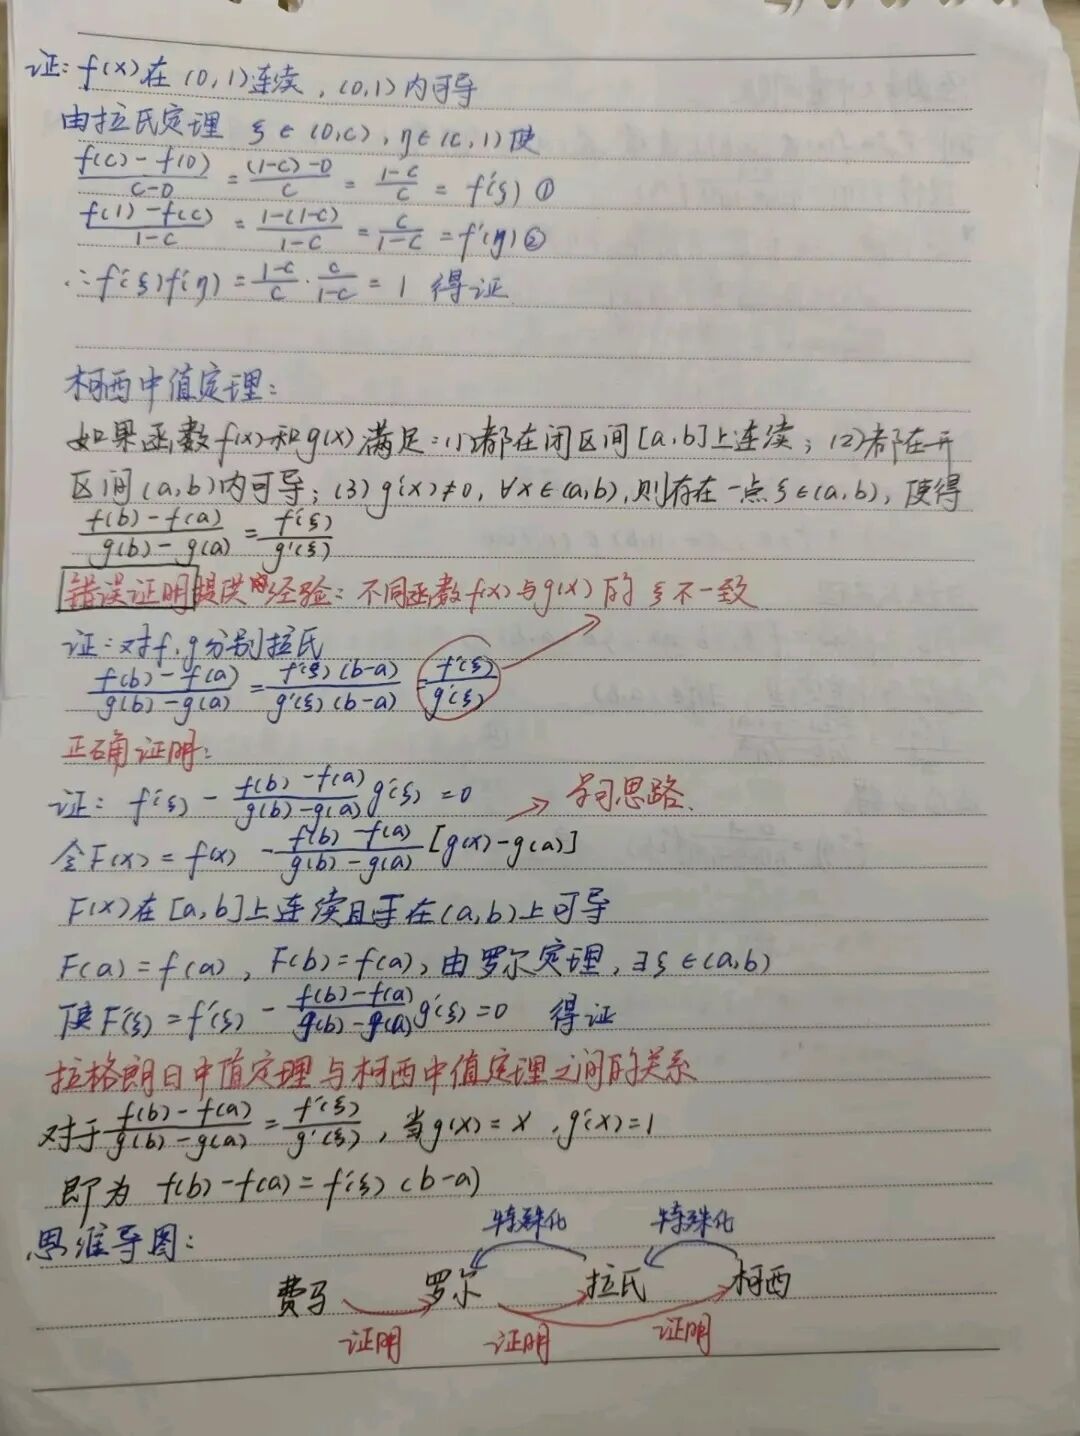 证: f(x)在(0,1)连续, (0,1)内可导
由拉氏定理 ξ∈(0,c), η∈(c,1)使
\frac{f(c)-f(0)}{c-0} = \frac{(1-c)-0}{c} = \frac{1-c}{c} = f'(ξ) ①
\frac{f(1)-f(c)}{1-c} = \frac{1-(1-c)}{1-c} = \frac{c}{1-c} = f'(η) ②
∴f'(ξ)f'(η) = \frac{1-c}{c} · \frac{c}{1-c} = 1 得证
柯西中值定理:
如果函数f(x)和g(x)满足:(1)都在闭区间[a,b]上连续; (2)都在开
区间(a,b)内可导; (3) g'(x)≠0, ∀x∈(a,b), 则存在一点ξ∈(a,b), 使得
\frac{f(b)-f(a)}{g(b)-g(a)} = \frac{f'(ξ)}{g'(ξ)}
错误证明提供的经验: 不同函数f(x)与g(x)的ξ不一致
证:对f,g分别拉氏
\frac{f(b)-f(a)}{g(b)-g(a)} = \frac{f'(ξ)(b-a)}{g'(ξ)(b-a)} = \frac{f'(ξ)}{g'(ξ)}
正确证明:
证: f'(ξ) - \frac{f(b)-f(a)}{g(b)-g(a)}g'(ξ) = 0 → 学习思路
令F(x) = f(x) - \frac{f(b)-f(a)}{g(b)-g(a)}[g(x)-g(a)]
F(x)在[a,b]上连续且在(a,b)上可导
F(a)=f(a), F(b)=f(a), 由罗尔定理, ∃ξ∈(a,b)
使F'(ξ) = f'(ξ) - \frac{f(b)-f(a)}{g(b)-g(a)}g'(ξ)=0 得证
拉格朗日中值定理与柯西中值定理之间的关系
对于\frac{f(b)-f(a)}{g(b)-g(a)} = \frac{f'(ξ)}{g'(ξ)}, 当g(x)=x, g'(x)=1
即为 f(b)-f(a)=f'(ξ)(b-a)
特殊化 特殊化
思维导图:
费马 罗尔 拉氏 柯西
证明 证明 证明